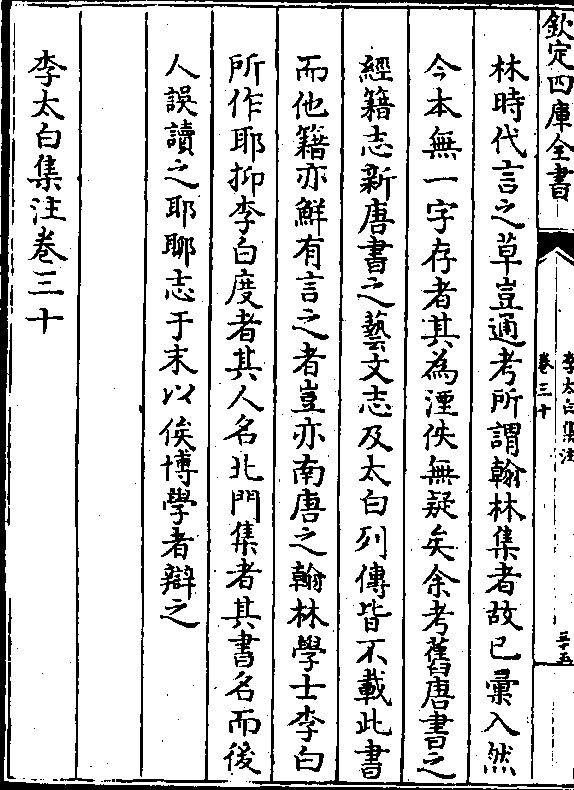 欽定四庫全書
李太白集注
卷三十
三十五
林時代言之草豈通考所謂翰林集者故已彙入然
今本無一字存者其為湮佚無疑矣余考舊唐書之
經籍志新唐書之藝文志及太白列傳皆不載此書
而他籍亦鮮有言之者豈亦南唐之翰林學士李白
所作耶抑李白度者其人名北門集者其書名而後
人誤讀之耶聊志于末以俟博學者辯之
李太白集注卷三十